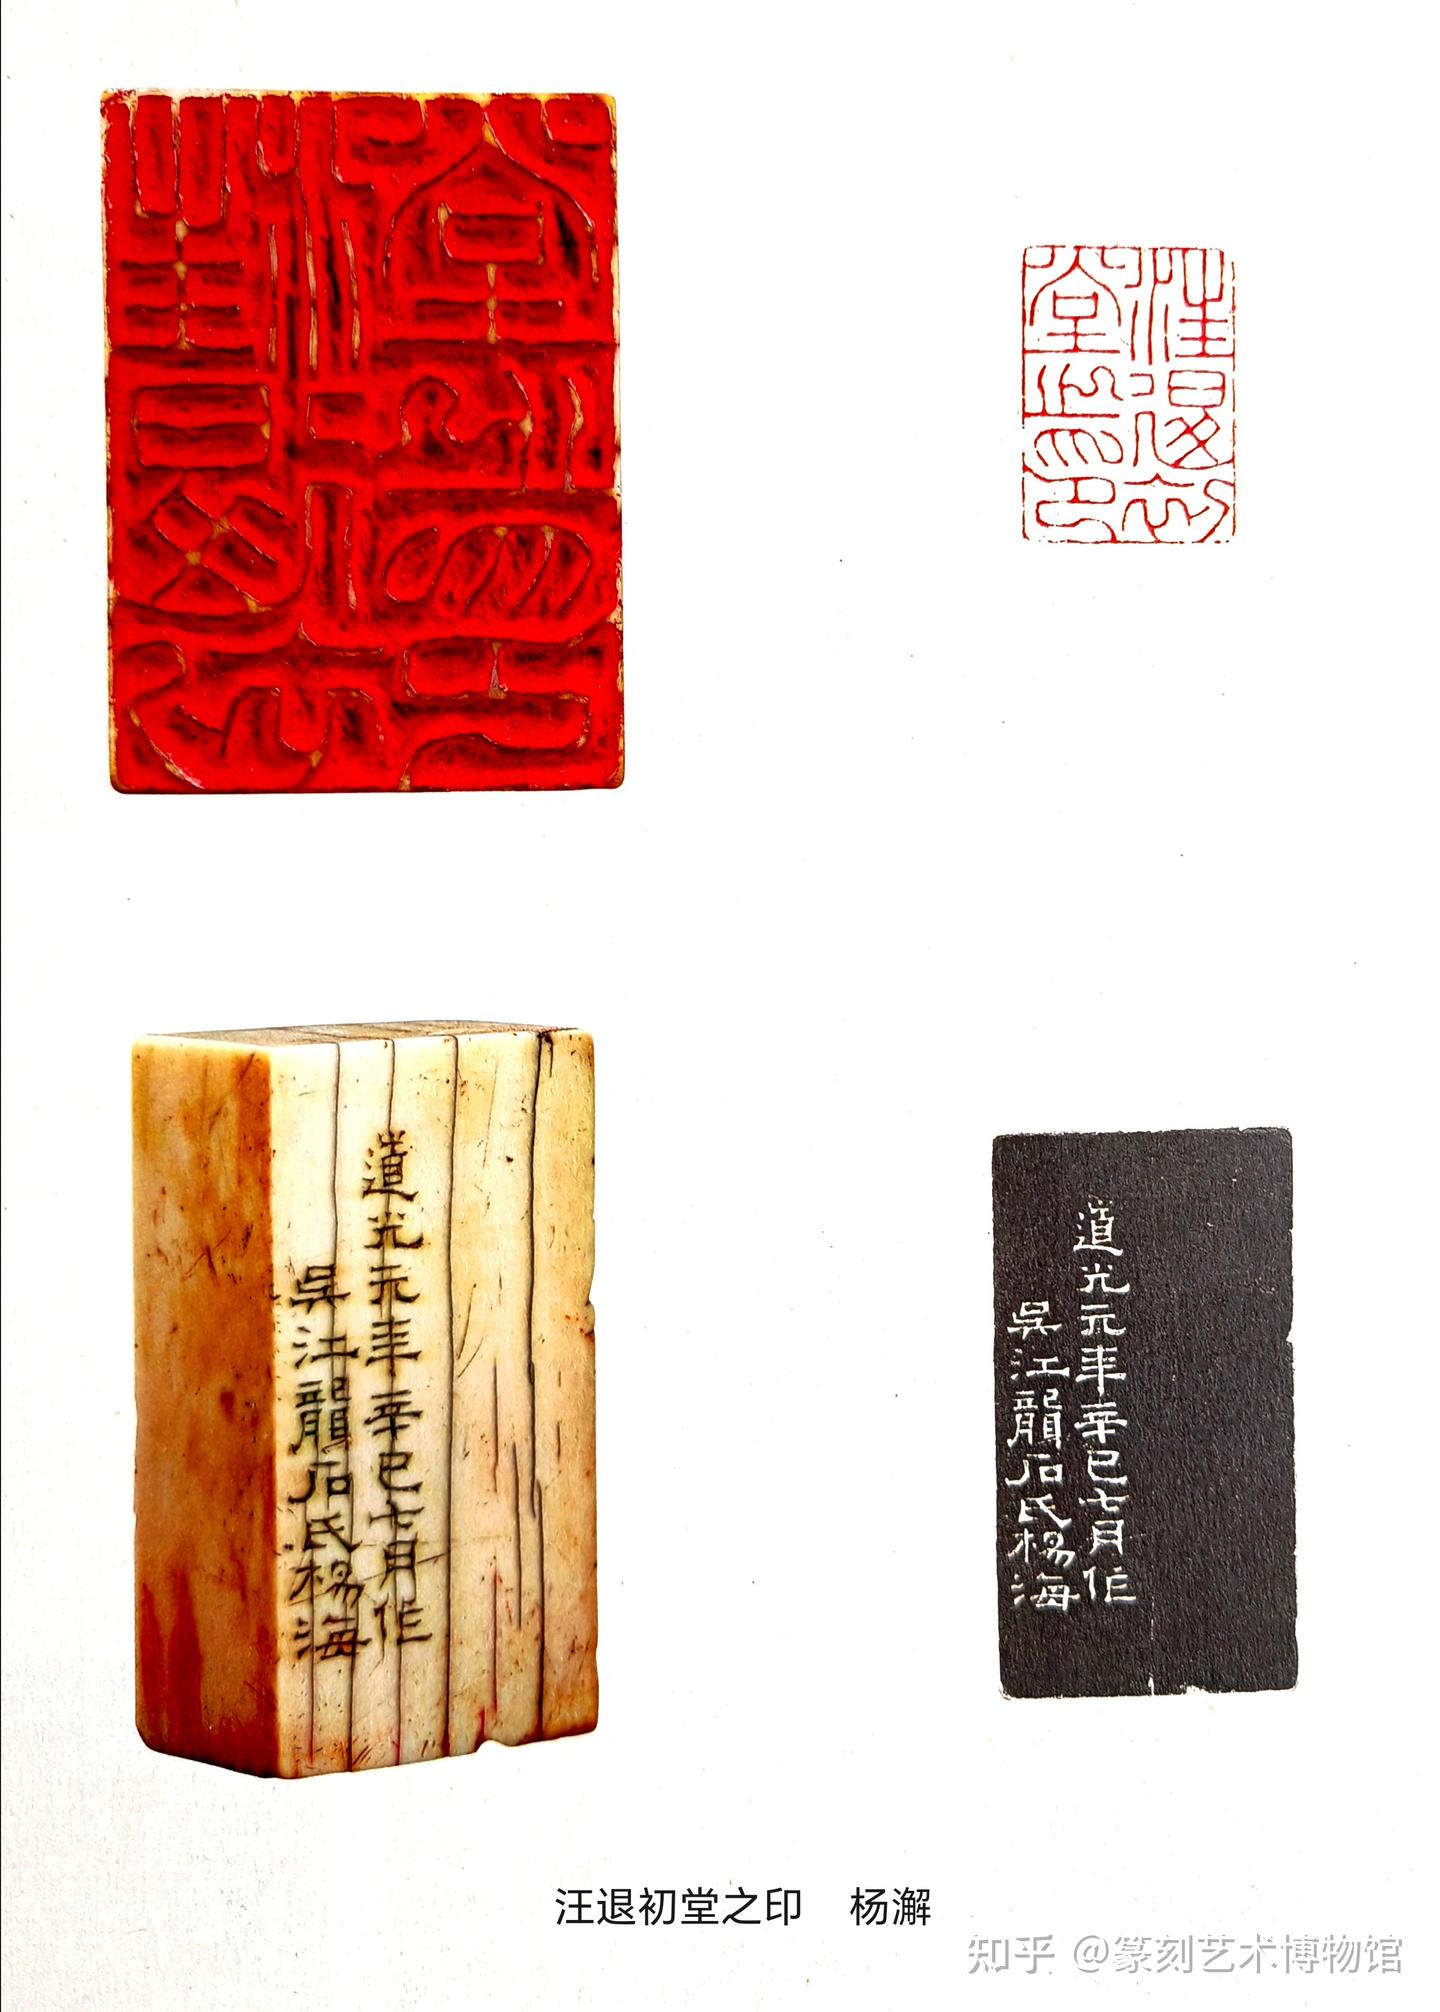 汪退初
堂之印
汪退初
堂之印
道光元年辛巳七月作
吳江龍石氏楊海
道光元年辛巳七月作
吳江龍石氏楊海
汪退初堂之印 杨澥
知乎 @篆刻艺术博物馆